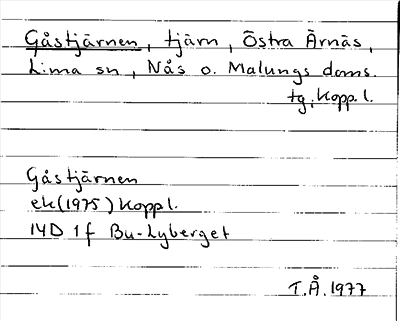 Gåstjärnen, tjärn, Östra Ärnäs,
Lima sn, Nås o. Malungs doms.
tg, Kopp. l.
Gåstjärnen
ek (1975) Koppl.
14D 1f Bu-Lyberget
T.Å. 1977